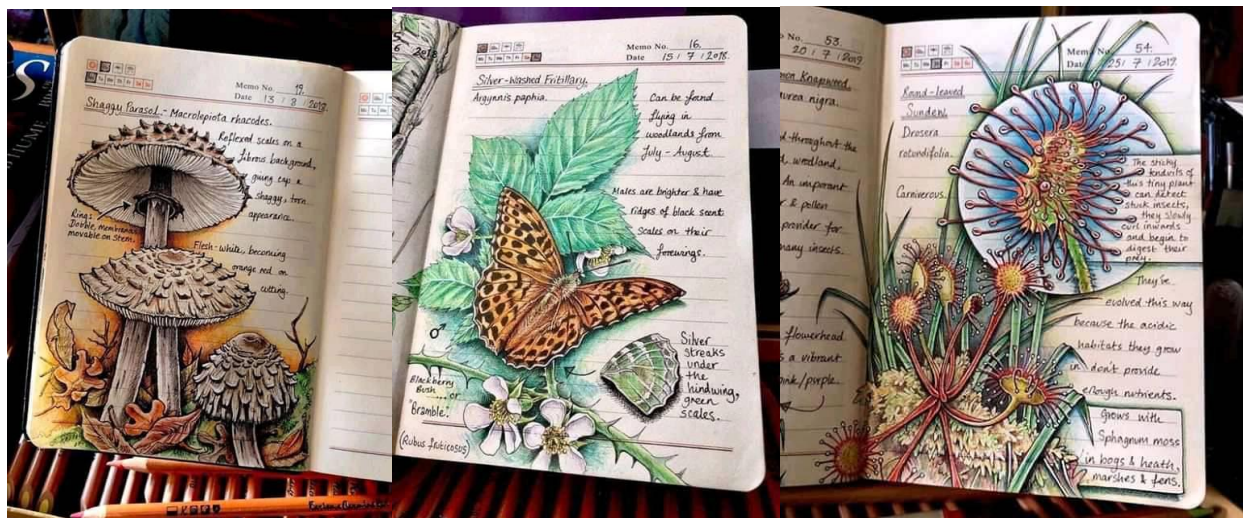 S
HUME
Memo No. 19.
Date 13 / 8 / 2019.
Shaggy Parasol - Macrolepiota rhacodes.
Reflexed scales on a
fibrous background,
giving cap a
shaggy, torn
appearance.
Ring:
Double, membranous
movable on stem.
Flesh-white, becoming
orange red on
cutting.
Memo No. 16.
Date 15 / 7 / 2019.
Silver-Washed Fritillary.
Argynnis paphia.
Can be found
flying in
woodlands from
July - August.
Males are brighter & have
ridges of black scent
scales on their
forewings.
♂
Silver
streaks
under
the
hindwing,
green
scales.
Blackberry
Bush.... or
"Bramble".
(Rubus fruticosus)
No. 53.
20 / 7 / 2019
Knapweed
nigra.
throughout the
woodland,
An important
& pollen
provider for
many insects.
flowerhead
s a vibrant
pink/purple.
Memo No. 54.
Date 25 / 7 / 2019.
Round-leaved
Sundew.
Drosera
rotundifolia.
Carnivorous.
The sticky
tendrils of
this tiny plant
can detect
stuck insects,
they slowly
curl inwards
and begin to
digest their
prey.
They've
evolved this way
because the acidic
habitats they grow
in don't provide
enough nutrients.
Grows with
Sphagnum moss
in bogs & heath,
marshes & fens.